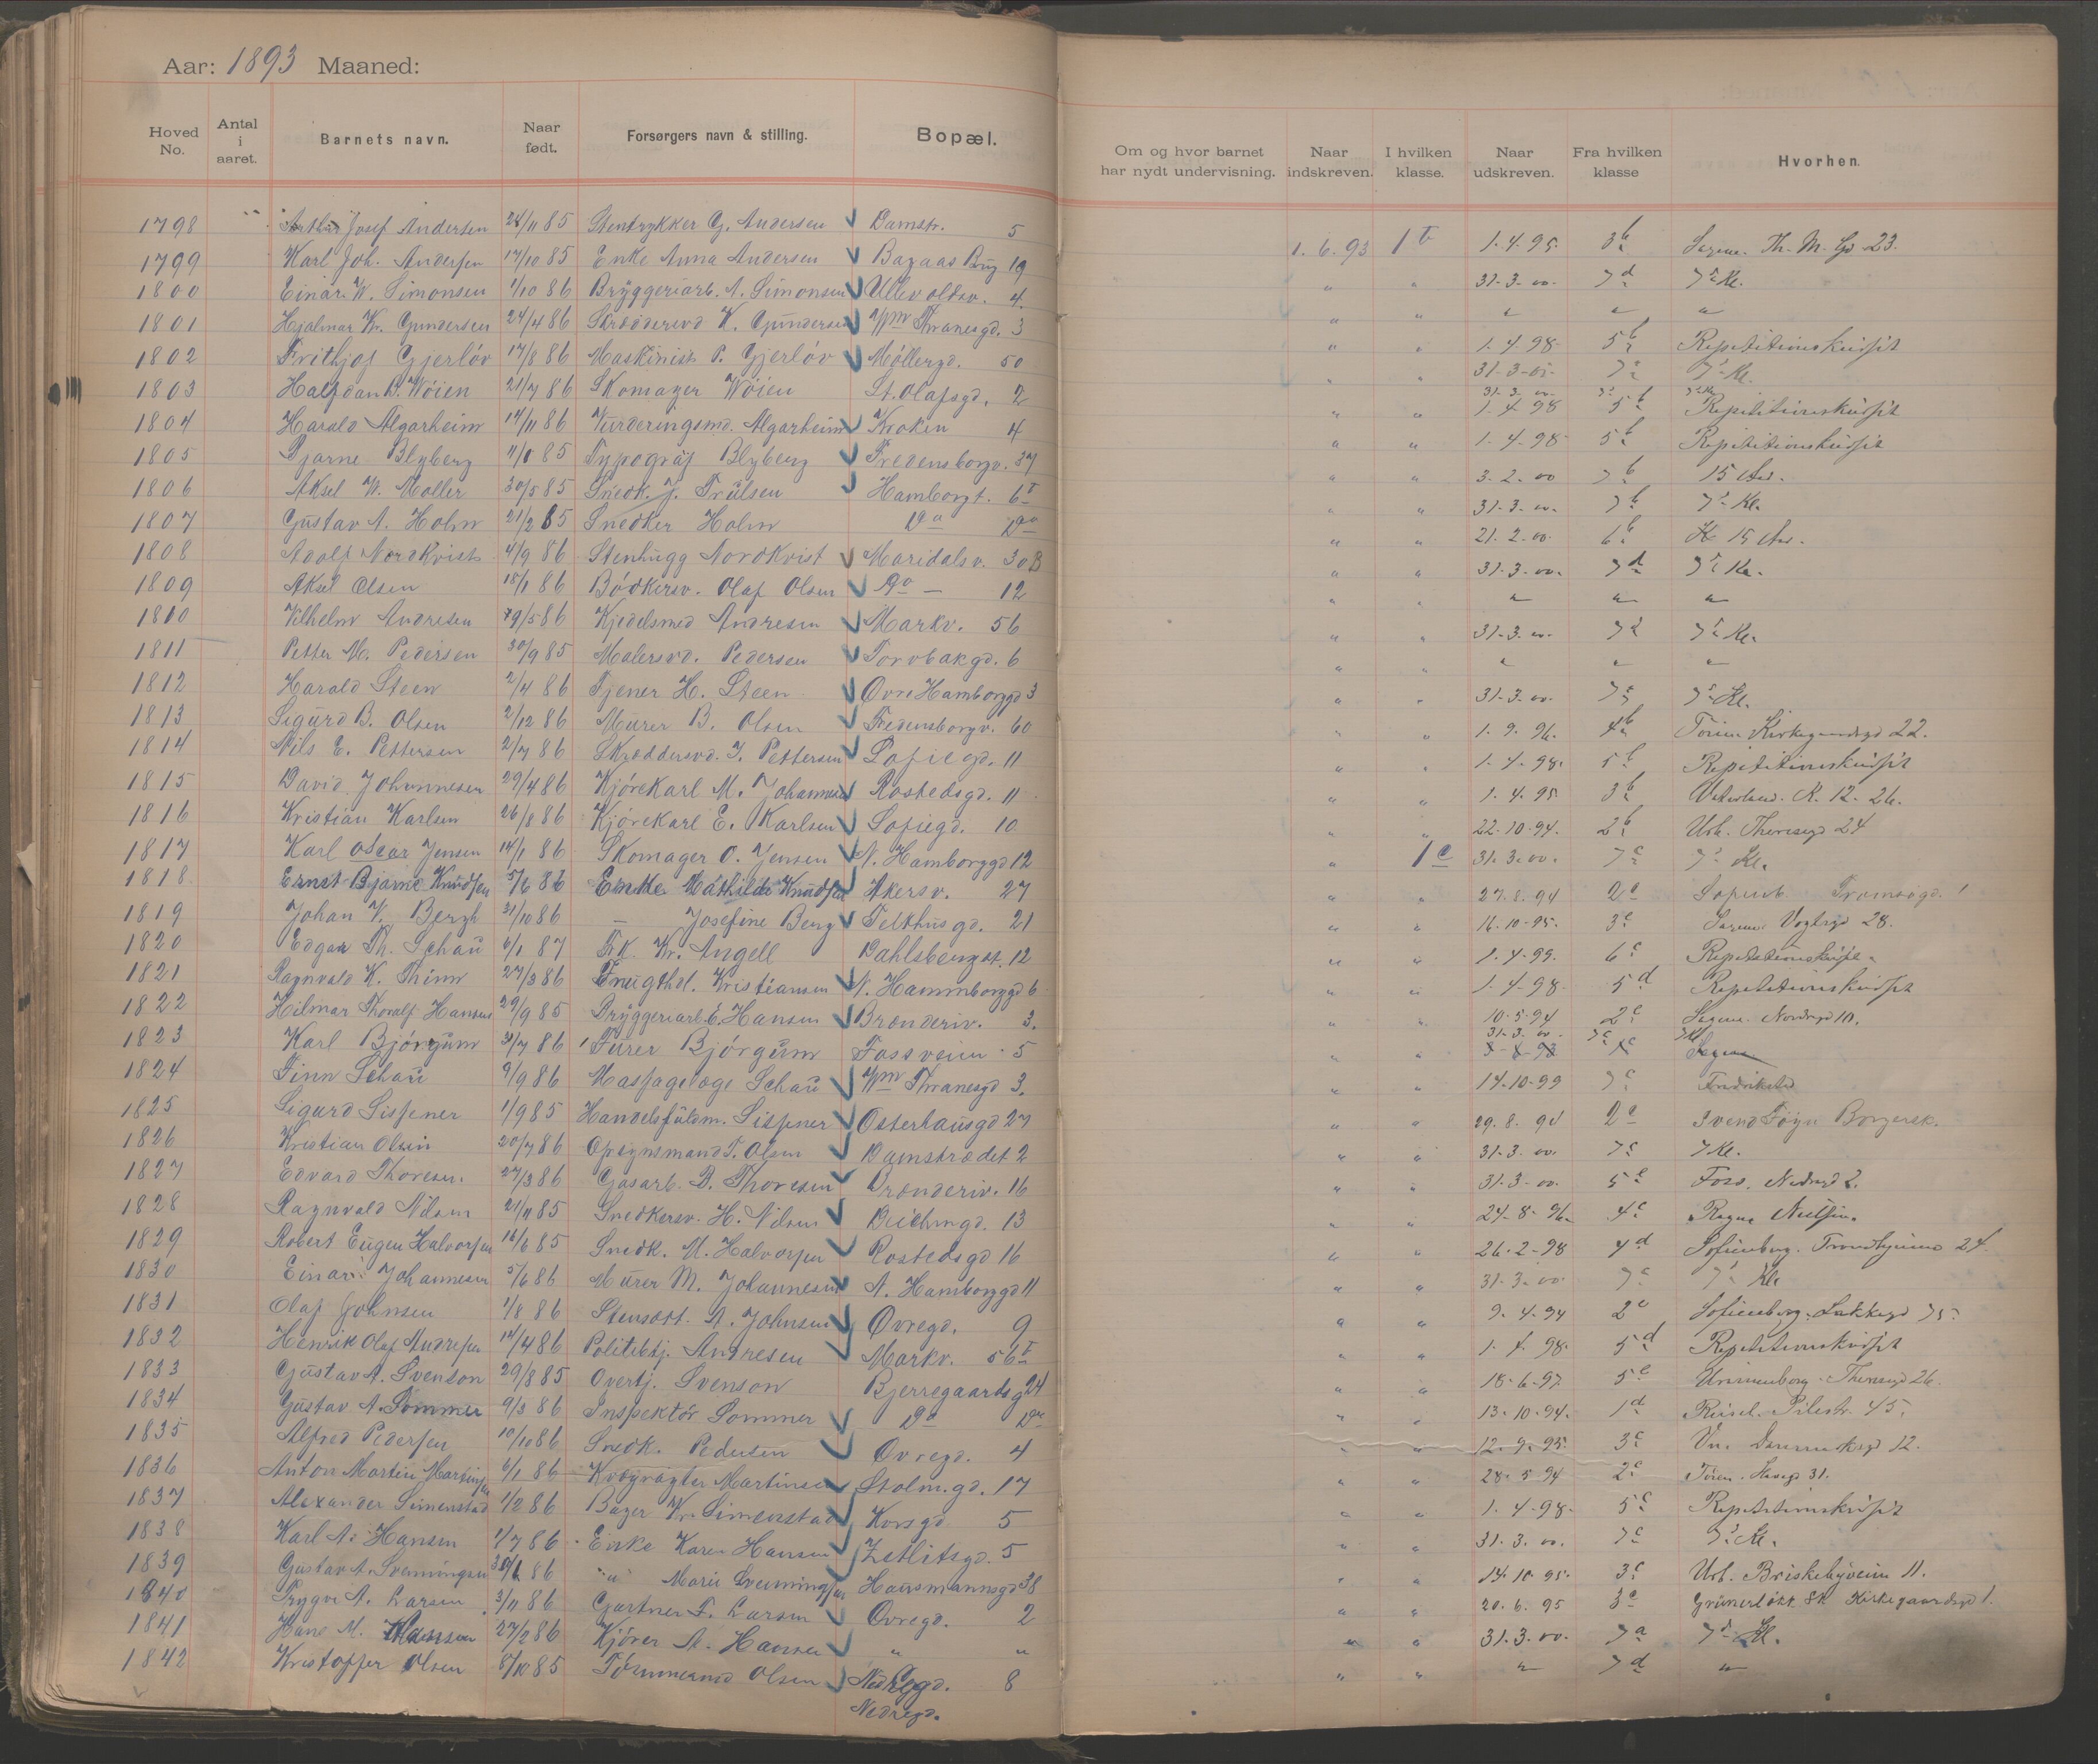 Aar: 1893 Maaned:
Hoved No. Antal i aaret. Barnets navn. Naar født. Forsørgers navn & stilling. Bopæl. Om og hvor barnet har nydt undervisning. Naar indskreven. I hvilken klasse. Naar udskreven. Fra hvilken klasse Hvorhen.
1798 Josef Andersen 28/11 85 Stentrykker G. Andersen Damstr. 5 1.6.93 1b 1.4.95. 3b Sagene. Th. M. Gd 23.
1799 Karl Joh. Andersen 17/10 85 Enke Anna Andersen 19 " " 31.3.00. 7d 7de Kl.
1800 Einar W. Simonsen 1/10 86 Bryggeriarb. A. Simonsen Ullevoldsv. 4. " " " " "
1801 Hjalmar Kr. Gundersen 24/4 86 Skrædersvd K. Gundersen Wm Thranesgd. 3 " " 1.4.98. 5b Repetitionskursit
1802 Frithjof Gjerløv 17/8 86 Maskinist P. Gjerløv Møllergd. 50 " "
1803 Halfdan B. Wøien 21/7 86 Skomager Wøien St. Olafsgd. 2 " " 1.4.98 5b Repetitionskursit
1804 Harald Algarheim 14/11 86 Vurderingsmd. Algarheim Kroken 4 " " 1.4.98 5b Repetitionskursit
1805 Bjarne Blyberg 11/8 85 Typograf Blyberg Fredensborgv. 37 " " 3.2.00 7b 15 Aar.
1806 Aksel W. Møller 30/5 85 Snedk. J. Trulsen Hamborgt. 6 I " " 31.3.00. 7b 7de Kl.
1807 Gustav A. Holm 21/2 85 Snedker Holm Do Do " " 21.2.00. 6b 15 Aar.
1808 Adolf Nordkvist 4/9 86 Stenhugg Nordkvist Maridalsv. 30B " " 31.3.00. 7d 7de Kl.
1809 Aksel Olsen 15/1 86 Bødkersv. Olaf Olsen Do 12 " " " " "
1810 Vilhelm Andresen 19/5 86 Kjedelsmed Andresen Markv. 56 " " 31.3.00. 7d 7de Kl.
1811 Petter M. Pedersen 30/9 85 Malersvd. Pedersen Torvbakgd. 6 " " " " "
1812 Harald Steen 2/4 86 Tjener H. Steen Øvre Hamborggd 3 " " 31.3.00. 7c 7de Kl.
1813 Sigurd B. Olsen 2/12 86 Murer B. Olsen Fredensborgv. 60 " " 1.9.96. 4b Tøien Kirkegaardsgd 22.
1814 Nils E. Pettersen 2/7 86 Skræddersvd. J. Pettersen Sofiegd. 11 " " 1.4.98. 5b Repetitionskursit
1815 David Johannesen 29/4 86 Kjørekarl M. Johannesen Rostedsgd. 11 " " 1.4.95 3b Vaterland. K. 12-26.
1816 Kristian Karlsen 26/8 86 Kjørekarl E. Karlsen Sofiegd. 10 " " 22.10.94. 2b Uh. Theresegd 24
1817 Karl Oscar Jensen 14/1 86 Skomager O. Jensen N. Hamborggd 12 " 1c 31.3.00. 7c 7de Kl.
1818 Ernst Bjarne Knudsen 5/6 86 Enke Mathilde Knudsen Akersv. 27 " " 27.8.94 2c Tromsøgd. 1
1819 Johan V. Bergh 31/10 86 — Josefine Berg Telthusgd. 21 " " 16.10.95. 3c Sagene Vogtsgd 28.
1820 Edgar Th. Schau 6/1 87 Frk. Kr. Angell Dahlsbergst. 12 " " 1.4.99. 6c Repetitionskurse.
1821 Ragnvald K. Thinn 27/3 86 Frugthdl. Kristiansen N. Hammborggd 6 " " 1.4.98. 5d Repetitionskursit
1822 Hilmar Thoralf Hansen 29/9 85 Bryggeriarb. E. Hansen Brønderiv. 3. " " 10.5.94 2c Sagene. Nordregd 10.
1823 Karl Bjørgum 31/7 86 Furer Bjørgum Fossveien 5 " " 31.3.00 7c Sagene
1824 Finn Schau 9/9 86 Massagelæge Schau Wm Thranesgd 3. " " 14.10.99 7c Fredrikstad
1825 Sigurd Sissener 1/9 85 Handelsfuldm. Sissener Osterhausgd 27 " " 29.8.94 2c Svend Foyn Borgersk.
1826 Kristian Olsen 20/7 86 Opsynsmand T. Olsen Damstrædet 2 " " 31.3.00. 7c 7 Kl.
1827 Edvard Thoresen. 27/3 86 Gasarb. B. Thoresen Brønderiv. 16 " " 31.3.00. 5c Foss. Nedregd 2.
1828 Ragnvald Nilsen 21/11 85 Snedkersv. H. Nilsen Deichmgd. 13 " " 24.8.96. 4c Ragna Nielsen.
1829 Robert Eugen Halvorsen 16/6 85 Snedk. M. Halvorsen Rostedsgd 16 " " 26.2.98 4d Sofienberg. Trondhjemsv 24.
1830 Einar Johannesen 5/6 86 Murer M. Johannesen N. Hamborggd 11 " " 31.3.00. 7c 7de Kl.
1831 Olaf Johnsen 1/8 86 Stensort. A. Johnsen Øvregd. 9 " " 9.4.94 2c Sofienberg. Lakkegd 75.
1832 Henrik Olaf Andresen 14/4 86 Politibtj. Andresen Markv. 56 I " " 1.4.98. 5d Repetitionskursit
1833 Gustav A. Svenson 29/8 85 Overtj. Svenson Bjerregaardsg 24 " " 18.6.97. 5c Theresegd 26.
1834 Gustav A. Sommer 9/3 86 Inspektør Sommer Do Do " " 13.10.94. 1d Pilestr. 45.
1835 Alfred Pedersen 10/10 86 Snedk. Pedersen Øvregd. 4 " " 12.9.95. 3c 12.
1836 Anton Martin Martinsen 6/1 86 Martinsen Stolm.gd. 17 " " 28.5.94 2c Tøien. 31.
1837 Alexander Simenstad 1/2 86 Bager Kr. Simenstad Korsgd. 5 " " 1.4.98. 5c Repetitionskursit
1838 Karl A. Hansen 1/7 86 Enke Karen Hansen Zetlitsgd. 5 " " 31.3.00. 7c 7de Kl.
1839 Gustav A. Svenningsen 86 " Marie Svenningsen Hausmannsgd 38 " " 14.10.95. 3c Uh. Briskebyveien 11.
1840 Trygve A. Larsen 3/11 86 Gartner F. Larsen Øvregd. 2 " " 20.6.95 3c Grünerløkk. Sk Kirkegaardsgd 1.
1841 Hans M. Hansen 27/2 86 Kjører A. Hansen " " " " 31.3.00. 7a 7de Kl.
1842 Kristoffer Olsen 8/10 85 Tømmermd Olsen 8 " " " 7d "
Nedregd.